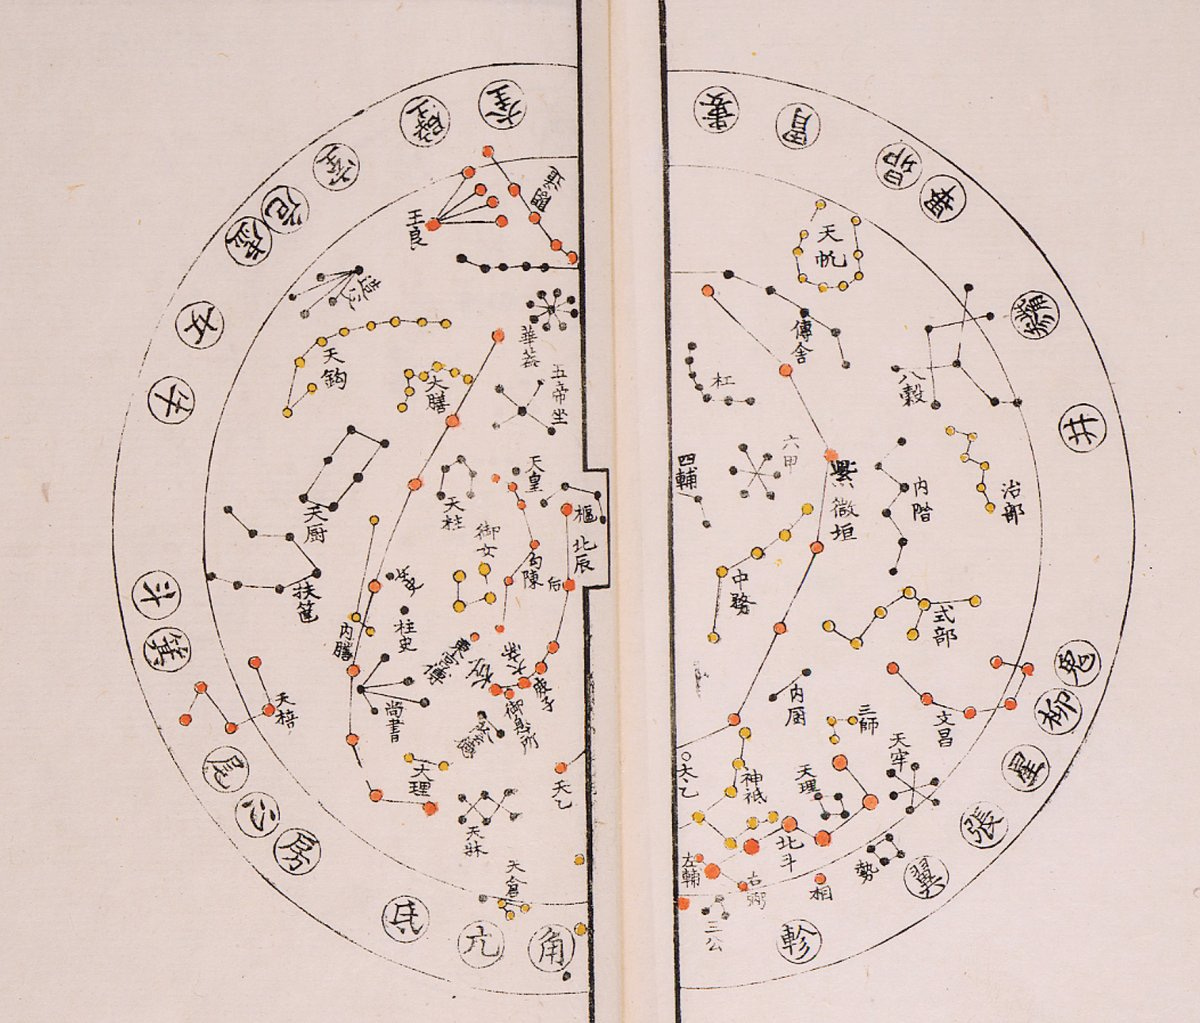 奎
壁
室
危
虚
女
牛
斗
箕
尾
心
房
氐
亢
角
王良
造父
天鈎
天厨
扶筐
天棓
華蓋
五帝坐
天皇
天柱
御女
勾陳
樞
北辰
后
柱史
内
尚書
大理
天牀
天倉
天乙
御息所
婁
胃
昴
畢
觜
井
鬼
柳
星
張
翼
軫
天帆
傳舎
杠
八穀
六甲
四輔
紫微垣
内階
治部
中務
式部
内厨
三師
文昌
天牢
太乙
神祇
天理
北斗
勢
左輔
右弼
相
三公